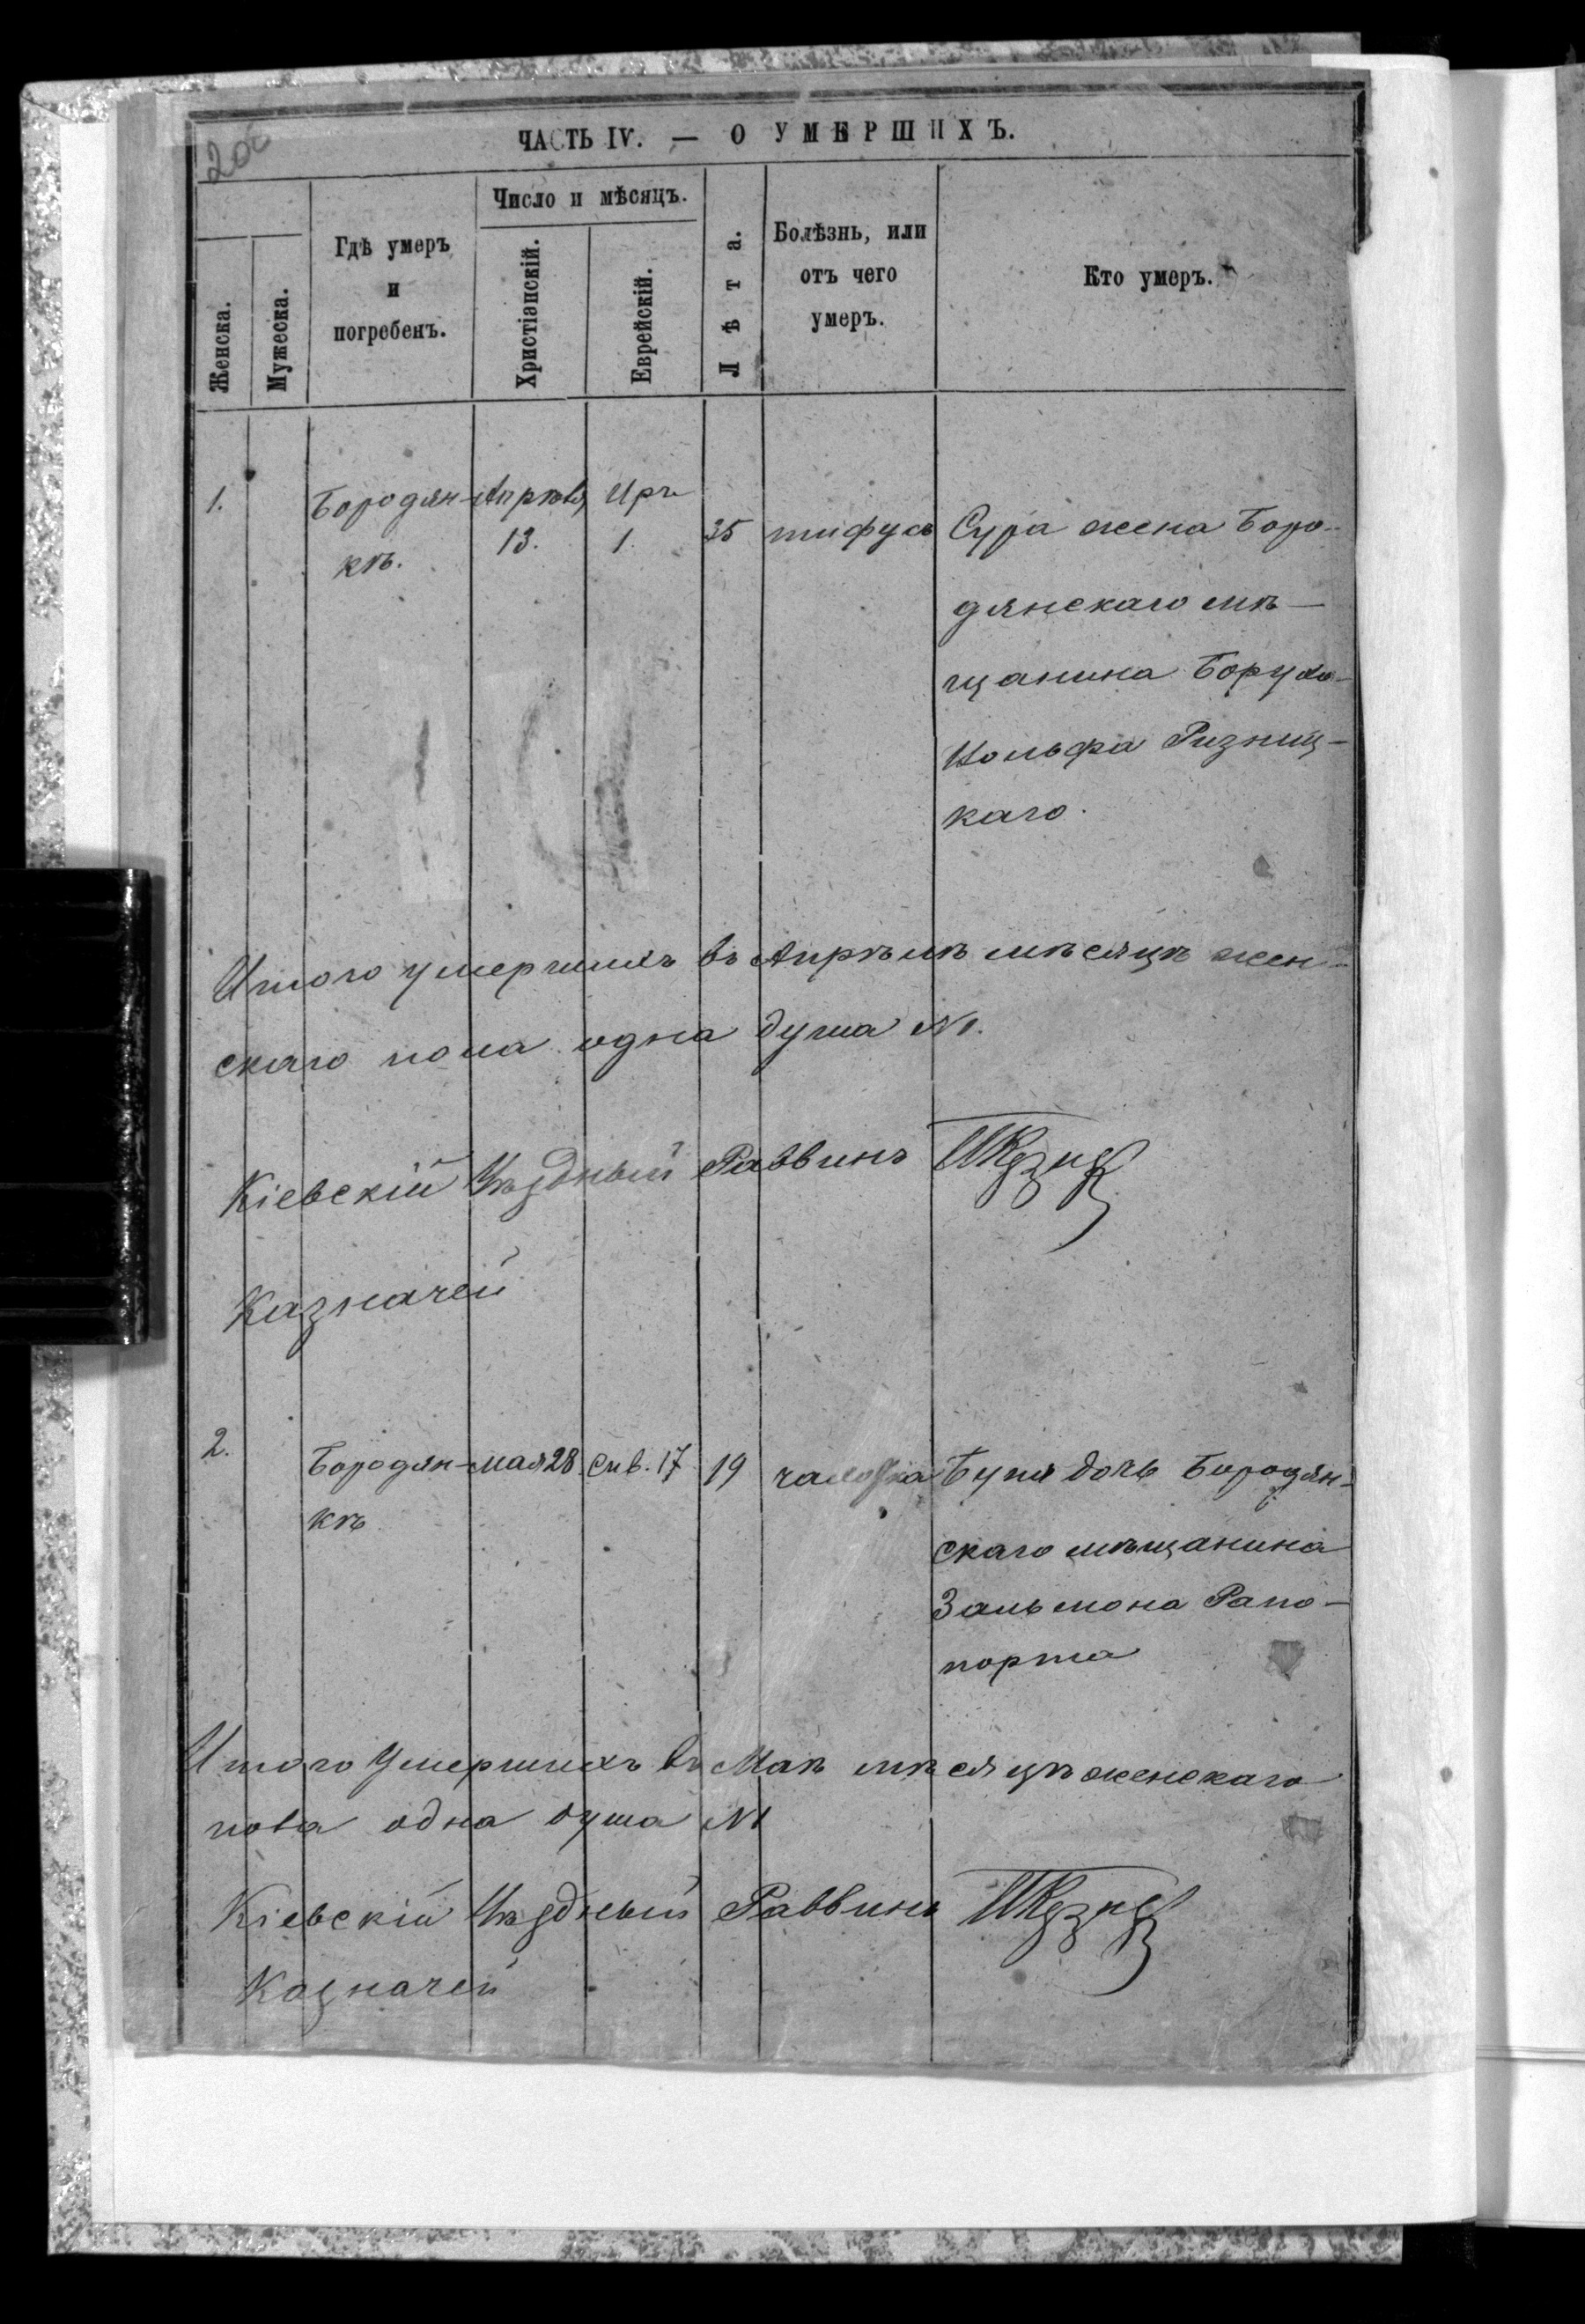 ЧАСТЬ IV. — О УМЕРШИХЪ.
Женска.
Мужеска.
Гдѣ умеръ
и
погребенъ.
Число и мѣсяцъ.
Христіанскій.
Еврейскій.
Лѣта.
Болѣзнь, или
отъ чего
умеръ.
Кто умеръ.
1.
Бородян-
кѣ.
Апрѣля
13.
Иръ
1.
35
тифусъ
Сура жена Боро-
дянскаго мѣ-
щанина Борухъ-
Вольфа Ризниц-
каго.
Итого умершихъ въ Апрѣлѣ мѣсяцѣ жен-
скаго пола одна душа №1.
Кіевскій Уѣздный Раввинъ
Казначей
2.
Бородян-
кѣ
мая 28
Сив. 17
19
чахотка
Буня дочь Бородян-
скаго мѣщанина
Зальмона Рапо-
порта
Итого Умершихъ въ Маѣ мѣсяцѣ женскаго
пола одна душа №1
Кіевскій Уѣздный Раввинъ
Казначей